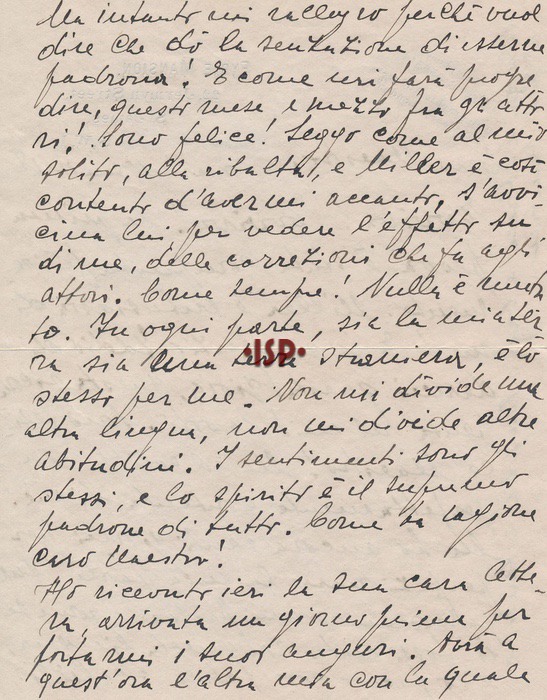 Ma intanto mi rallegro perchè vuol
dire che dò la sensazione di esserne
padrona! E come mi farà progre
dire, questo mese e mezzo fra gli atto
ri! Sono felice! Seggo come al mio
solito, alla ribalta, e Miller è così
contento d'avermi accanto, s'avvi-
cina lui per vedere l'effetto su
di me, delle correzioni che fa agli
attori. Come sempre! Nulla è muta
to. In ogni parte, sia la mia ter
ra sia una terra straniera, è lo
stesso per me. Non mi divide una
altra lingua, non mi divide altre
abitudini. I sentimenti sono gli
stessi, e lo spirito è il supremo
padrone di tutto. Come ha ragione
caro Maestro!
Ho ricevuto ieri la sua cara lette-
ra, arrivata un giorno prima per
portarmi i suoi auguri. Avrà a
quest'ora l'altra mia con la quale
·ISP·